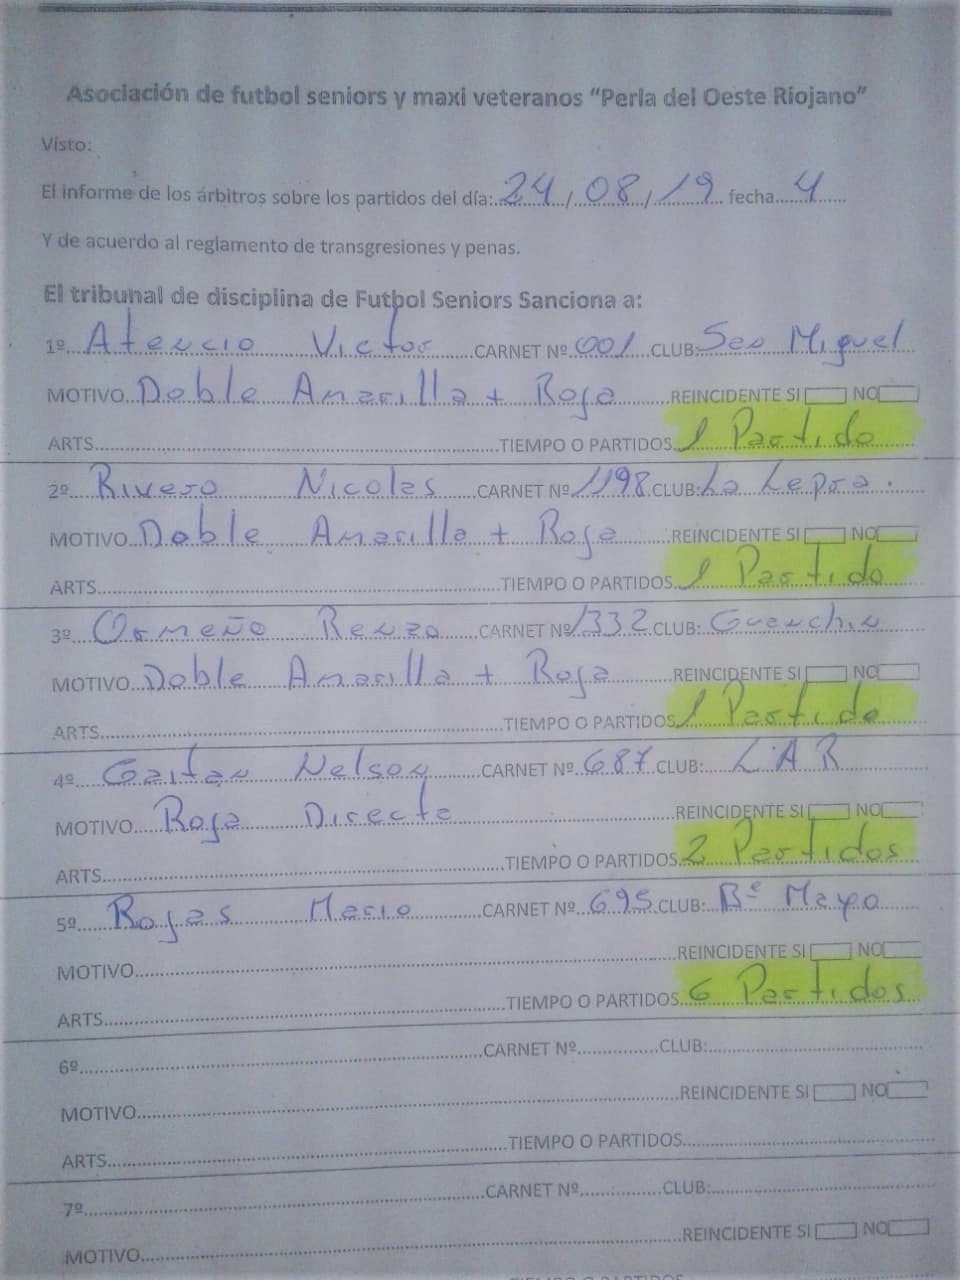 Asociación de futbol seniors y maxi veteranos “Perla del Oeste Riojano”
Visto:
El informe de los árbitros sobre los partidos del día: 24 / 08 / 19 fecha 4
Y de acuerdo al reglamento de transgresiones y penas.
El tribunal de disciplina de Futbol Seniors Sanciona a:
1º Atencio Victor CARNET Nº 001 CLUB: San Miguel
MOTIVO Doble Amarilla + Roja REINCIDENTE SI NO
ARTS. TIEMPO O PARTIDOS 1 Partido
2º Rivero Nicolas CARNET Nº 1198 CLUB: La Lepra.
MOTIVO Doble Amarilla + Roja REINCIDENTE SI NO
ARTS. TIEMPO O PARTIDOS 1 Partido
3º Ormeño Renzo CARNET Nº 1332 CLUB: Guanchin
MOTIVO Doble Amarilla + Roja REINCIDENTE SI NO
ARTS. TIEMPO O PARTIDOS 1 Partido
4º Gaitan Nelson CARNET Nº 687 CLUB: L.A.R
MOTIVO Roja Directa REINCIDENTE SI NO
ARTS. TIEMPO O PARTIDOS 2 Partidos
5º Rojas Mario CARNET Nº 695 CLUB: Bº Mayo
MOTIVO REINCIDENTE SI NO
ARTS. TIEMPO O PARTIDOS 6 Partidos
6º CARNET Nº CLUB:
MOTIVO REINCIDENTE SI NO
ARTS. TIEMPO O PARTIDOS
7º CARNET Nº CLUB:
MOTIVO REINCIDENTE SI NO
TIEMPO O PARTIDOS